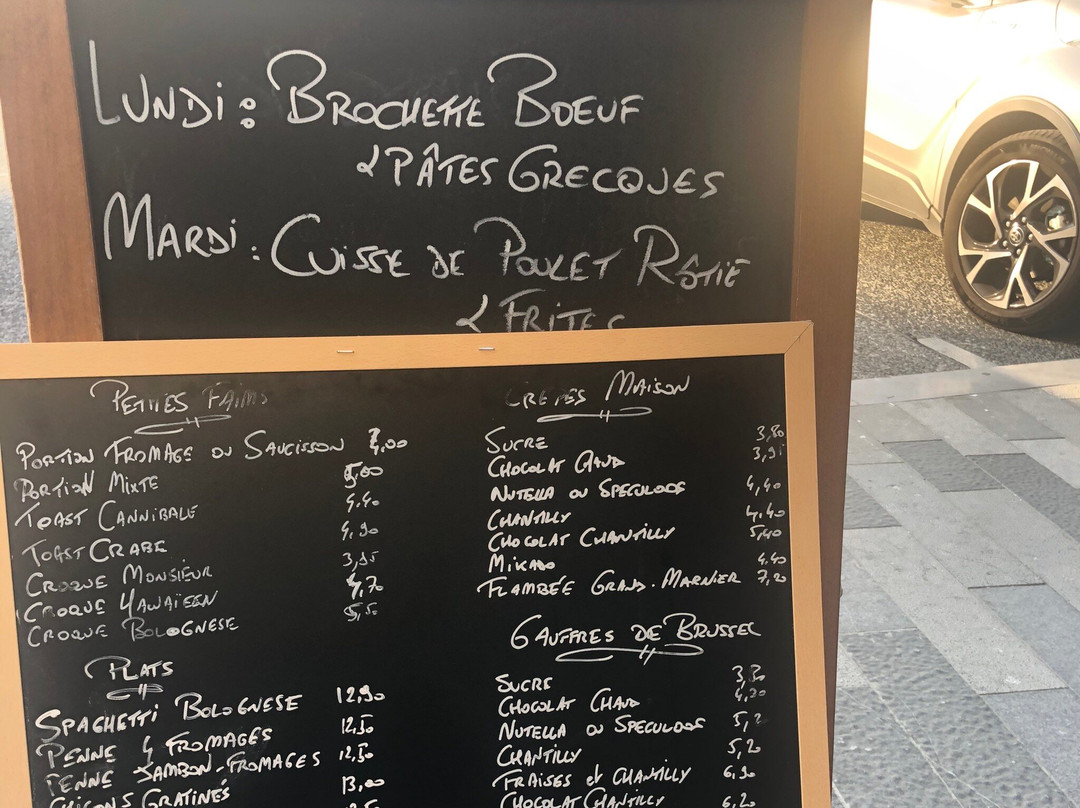 LUNDI : BROCHETTE BOEUF
& PÂTES GRECQUES
MARDI : CUISSE DE POULET RÔTIE
& FRITES
PETITES FAIMS
PORTION FROMAGE OU SAUCISSON
PORTION MIXTE 5,00
TOAST CANNIBALE 4,40
TOAST CRABE 4,90
CROQUE MONSIEUR 3,95
CROQUE HAWAÏEEN 4,70
CROQUE BOLOGNESE 5,50
PLATS
SPAGHETTI BOLOGNESE 12,90
PENNE 4 FROMAGES 12,50
PENNE JAMBON-FROMAGES 12,50
GRATINÉS 13,00
CRÊPES MAISON
SUCRE 3,80
CHOCOLAT CHAUD
NUTELLA OU SPECULOOS 4,40
CHANTILLY 4,40
CHOCOLAT CHANTILLY 5,40
MIKADO 4,40
FLAMBÉE GRAND-MARNIER 7,20
GAUFFRES DE BRUSSEL
SUCRE
CHOCOLAT CHAUD
NUTELLA OU SPECULOOS
CHANTILLY 5,20
FRAISES et CHANTILLY 6,90
CHOCOLAT CHANTILLY 6,20